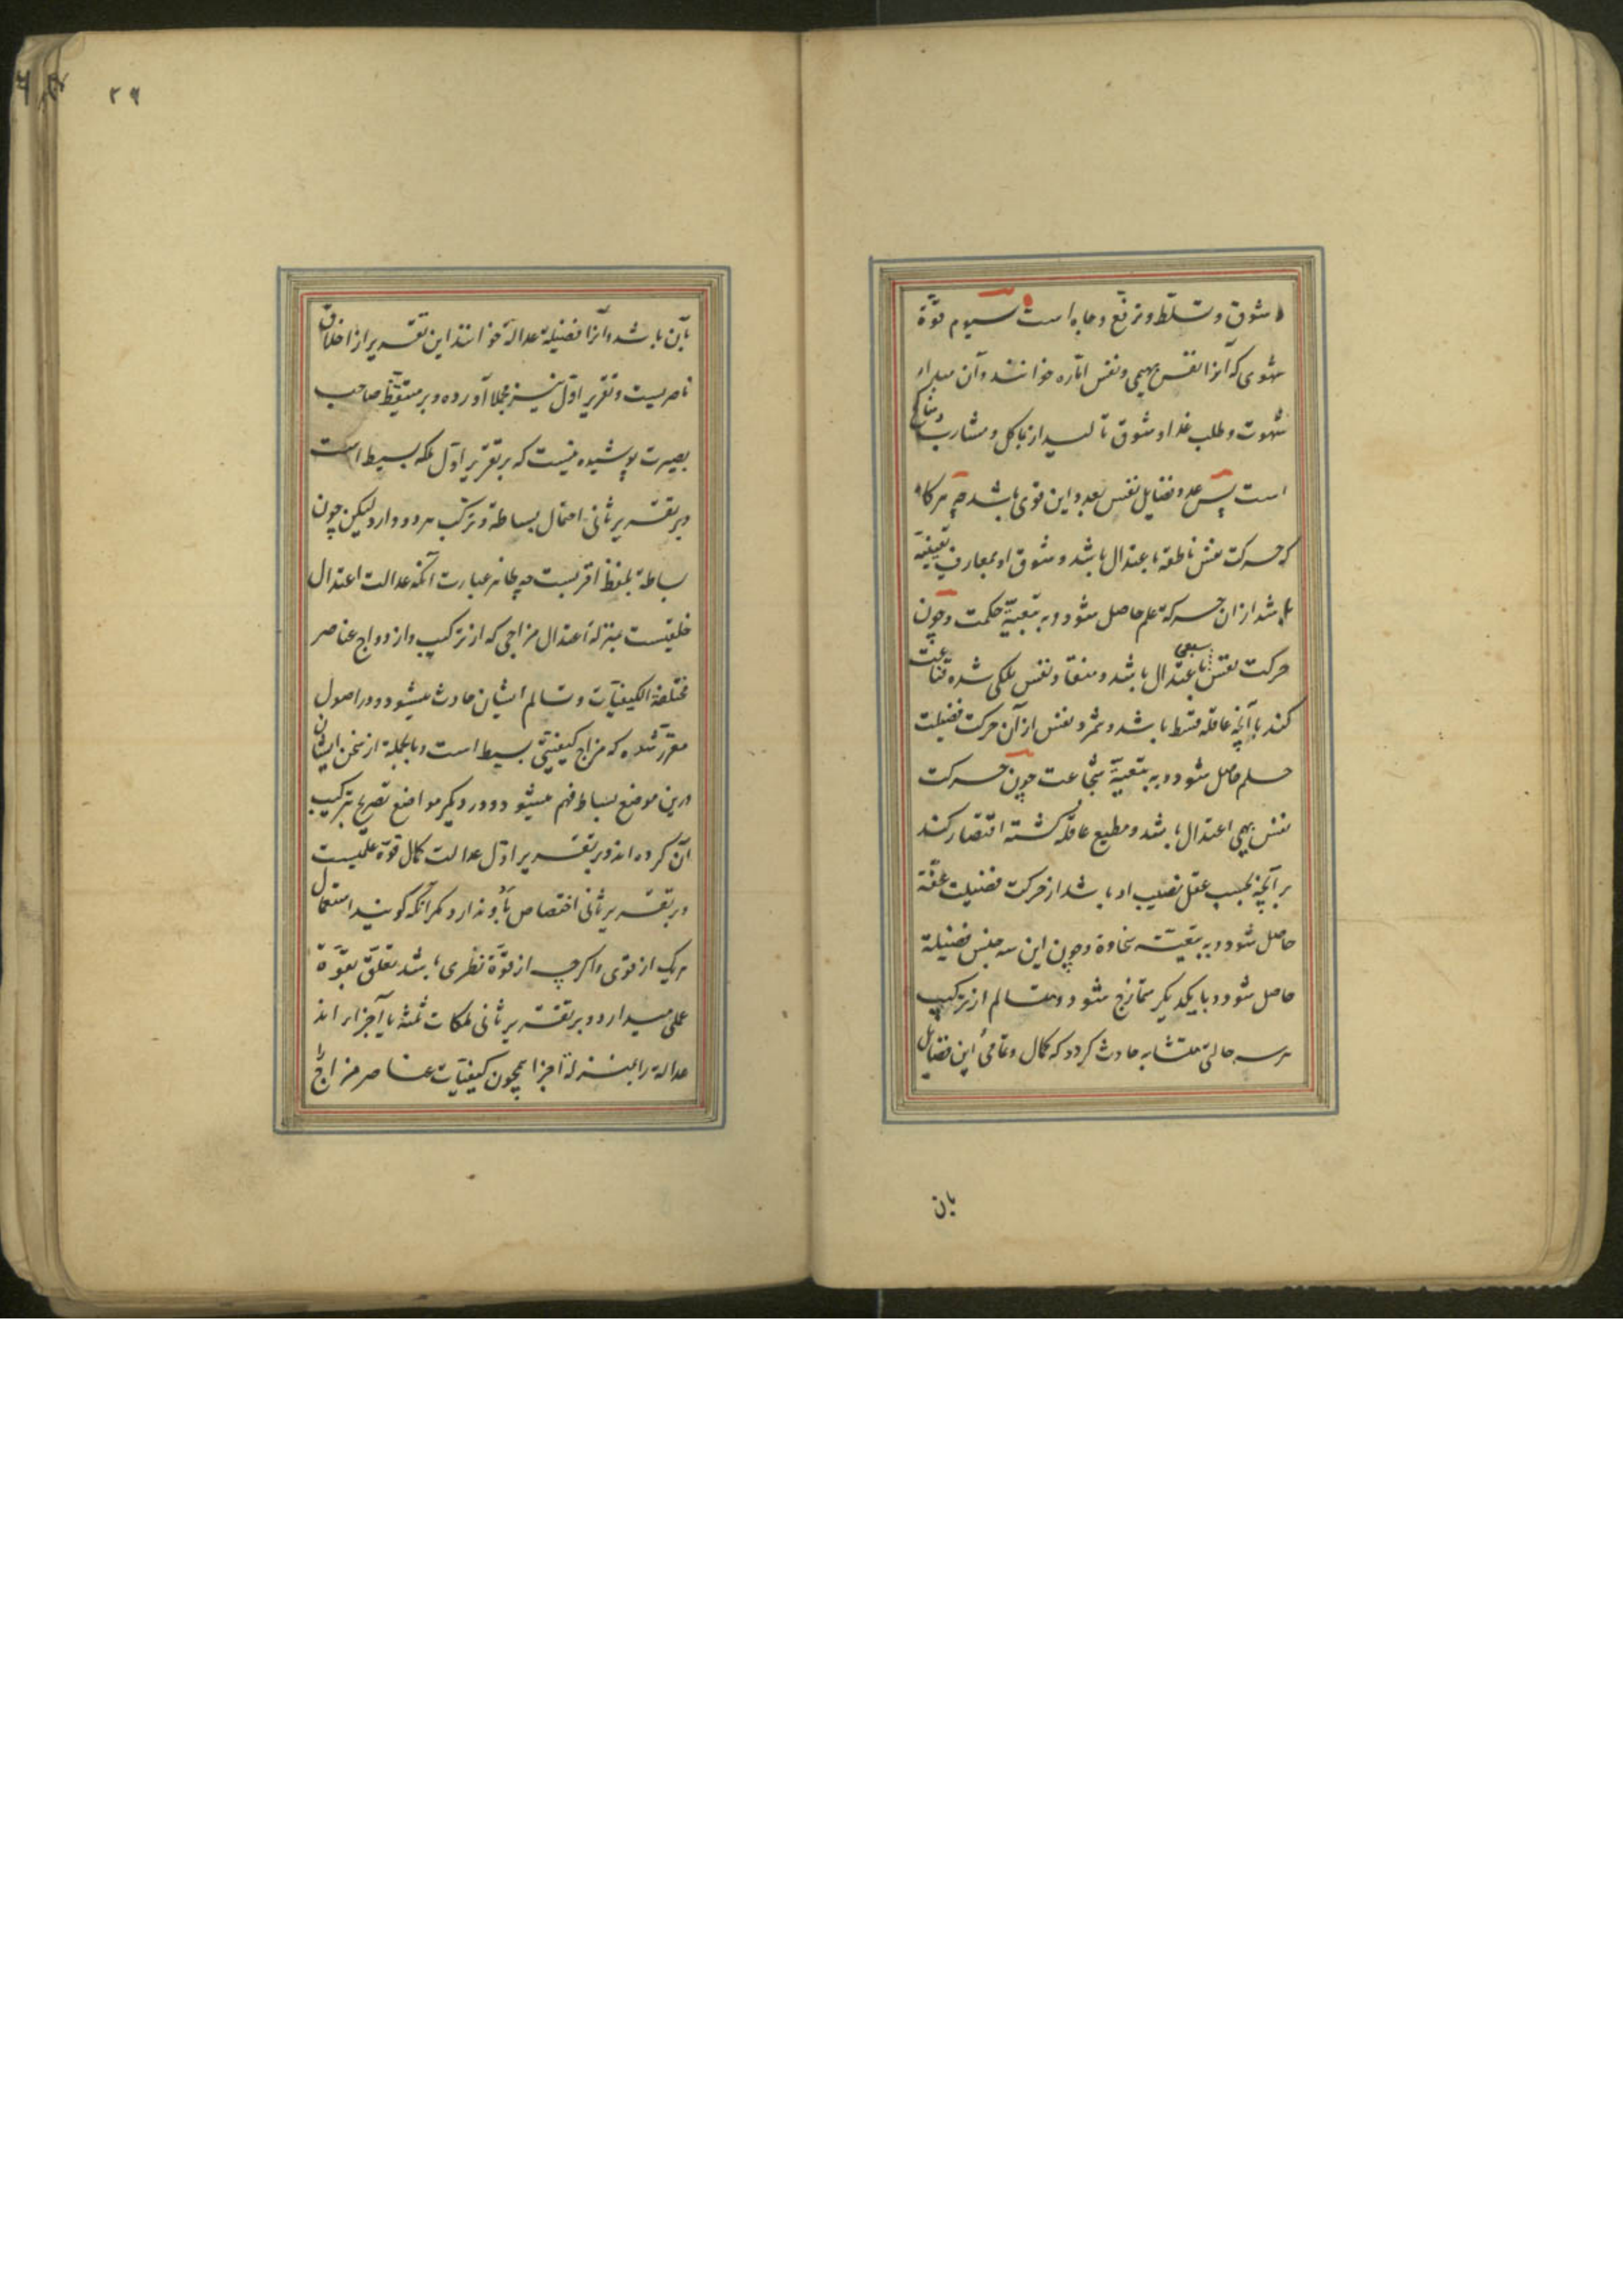 و شوق و تسلّط و ترفّع و جاه است سیوم قوّة
شهوی که آنرا نفس بهیمی و نفس امّاره خوانند و آن مبداء
شهوت و طلب غذا و شوق تا لسیذ از مآکل و مشارب و مناکح
است پس عدد فضایل نفس بعدد این قوی باشد چه هرگاه
که حرکت نفس ناطقه باعتدال باشد و شوق او بمعارف یقینیّة
باشد از ان حرکة علم حاصل شود و به تبعیّة حکمت و چون
حرکت نفس سبعی باعتدال باشد و منقاد نفس ملکی شده قناعت
کند بآنچه عاقله قسط باشد و شمرد نفس از آن حرکت فضیلت
حلم حاصل شود و به تبعیّة شجاعت چون حرکت
نفس بهیمی اعتدال باشد و مطیع عاقله گشته اقتصار کند
بر آنچه بحسب عقل نصیب او باشد از حرکت فضیلت عفّة
حاصل شود و به تبعیّت سخاوة و چون این سه جنس فضیلة
حاصل شود و بایکدیگر متمازج شود و متسالم از ترکیب
هر سه حالتی متشابه حادث کردد که کمال و تمامئ این فضایل
بان
۲۹
بآن باشد و آنرا فضیلة عدالة خوانند این تقریر از اخلاق
ناصریست و تقریر اوّل نیز مجملا آورده و بر متیقّظ صاحب
بصیرت پوشیده نیست که بر تقریر اوّل ملکه بسیط است
و بر تقریر ثانی احتمال بساطة و ترکیب هر دو دارد لیکن چون
بساطة بلفظ اقربست چه ظاهر عبارت آنکه عدالت اعتدال
خلقیست بمنزله اعتدال مزاجی که از ترکیب و ازدواج عناصر
مختلفة الکیفیّات و تسالم ایشان حادث میشود و در اصول
مقرّر شده که مزاج کیفیّتی بسیط است و بالجملة از سخن ایشان
درین موضع بساط فهم میشو د و در دیگر مواضع تصریح بترکیب
آن کرده اند و بر تقریر اوّل عدالت کمال قوّة عملیست
و بر تقریر ثانی اختصاص باو ندارد مکر آنکه کویند استعمال
هریک از قوی و اکرچه از قوّة نظری باشد تعلّق بقوّة
عملی میدارد و بر تقریر ثانی ملکات ثلثه یا آجزا اند
عدالة را بمنزلة اجزا همچون کیفیّات عناصر مزاج را